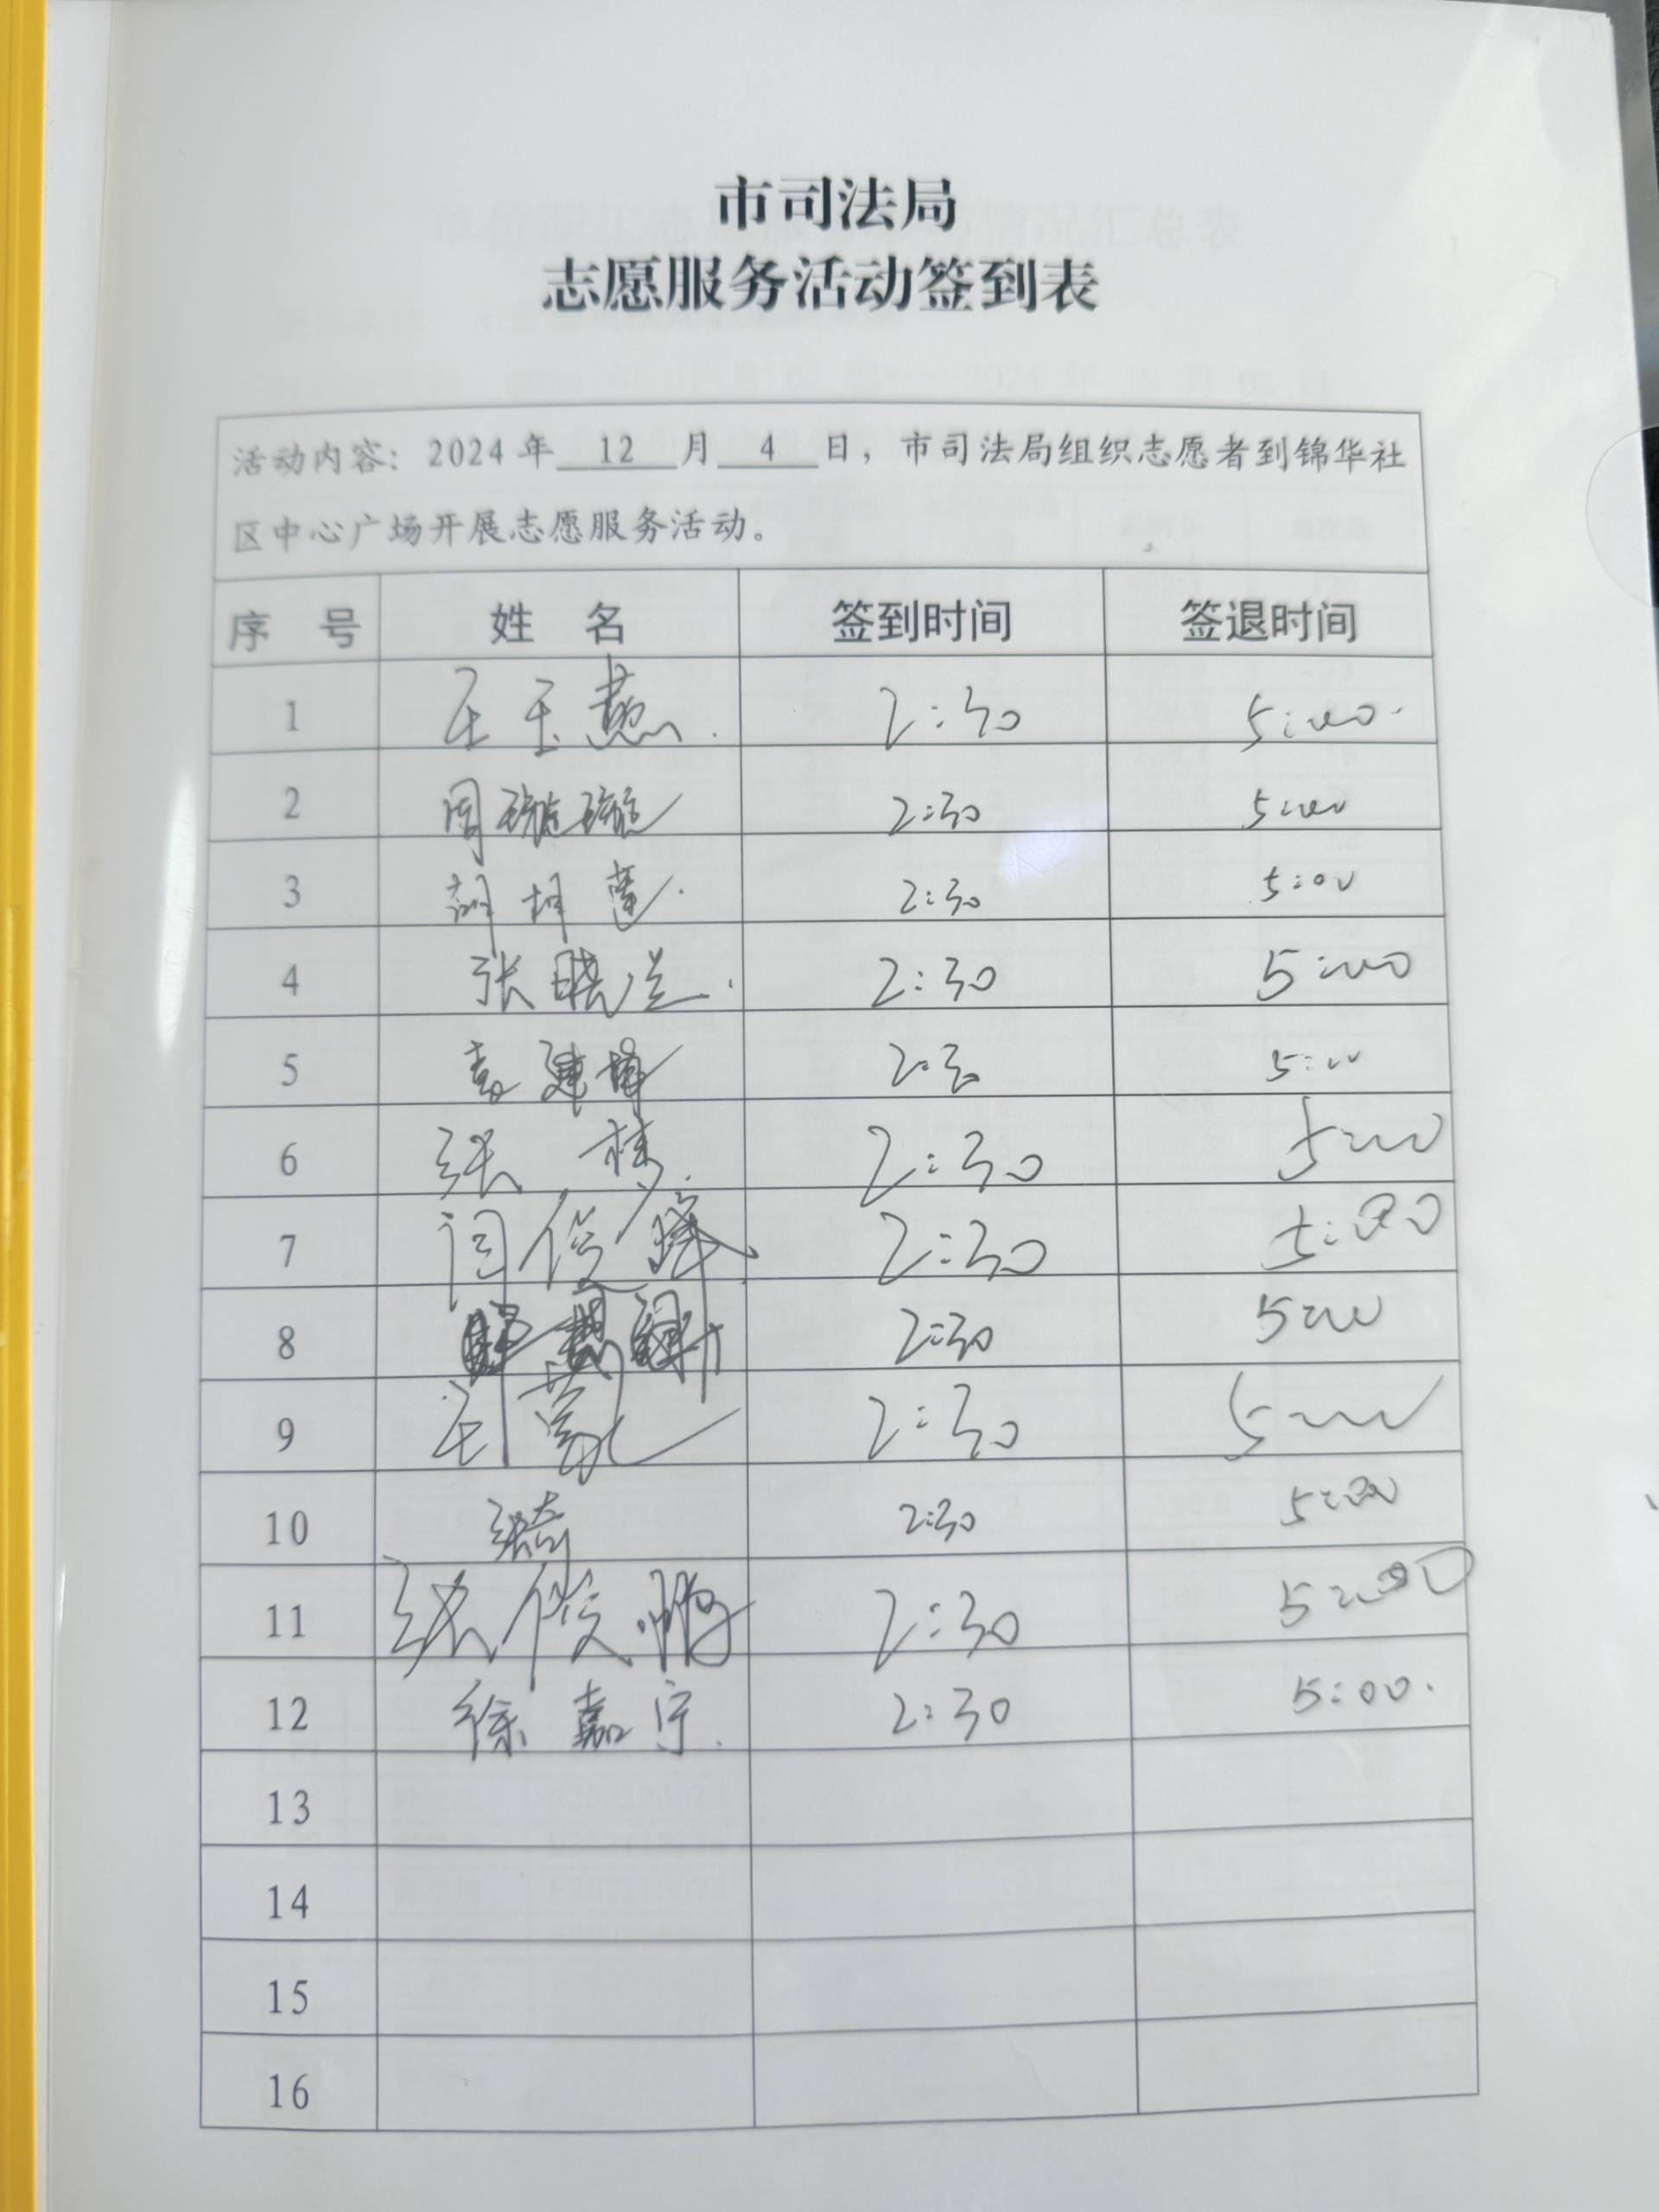 市司法局
志愿服务活动签到表
活动内容：2024年 12 月 4 日，市司法局组织志愿者到锦华社
区中心广场开展志愿服务活动。
序 号 姓 名 签到时间 签退时间
1 王玉燕 2:30 5:00
2 周璇璇 2:30 5:00
3 2:30 5:00
4 张晓兰 2:30 5:00
5 袁建峰 2:30 5:00
6 张 2:30 5:00
7 闫俊 2:30 5:00
8 2:30 5:00
9 2:30 5:00
10 张奇 2:30 5:00
11 张俊鹏 2:30 5:00
12 徐嘉宁 2:30 5:00
13
14
15
16